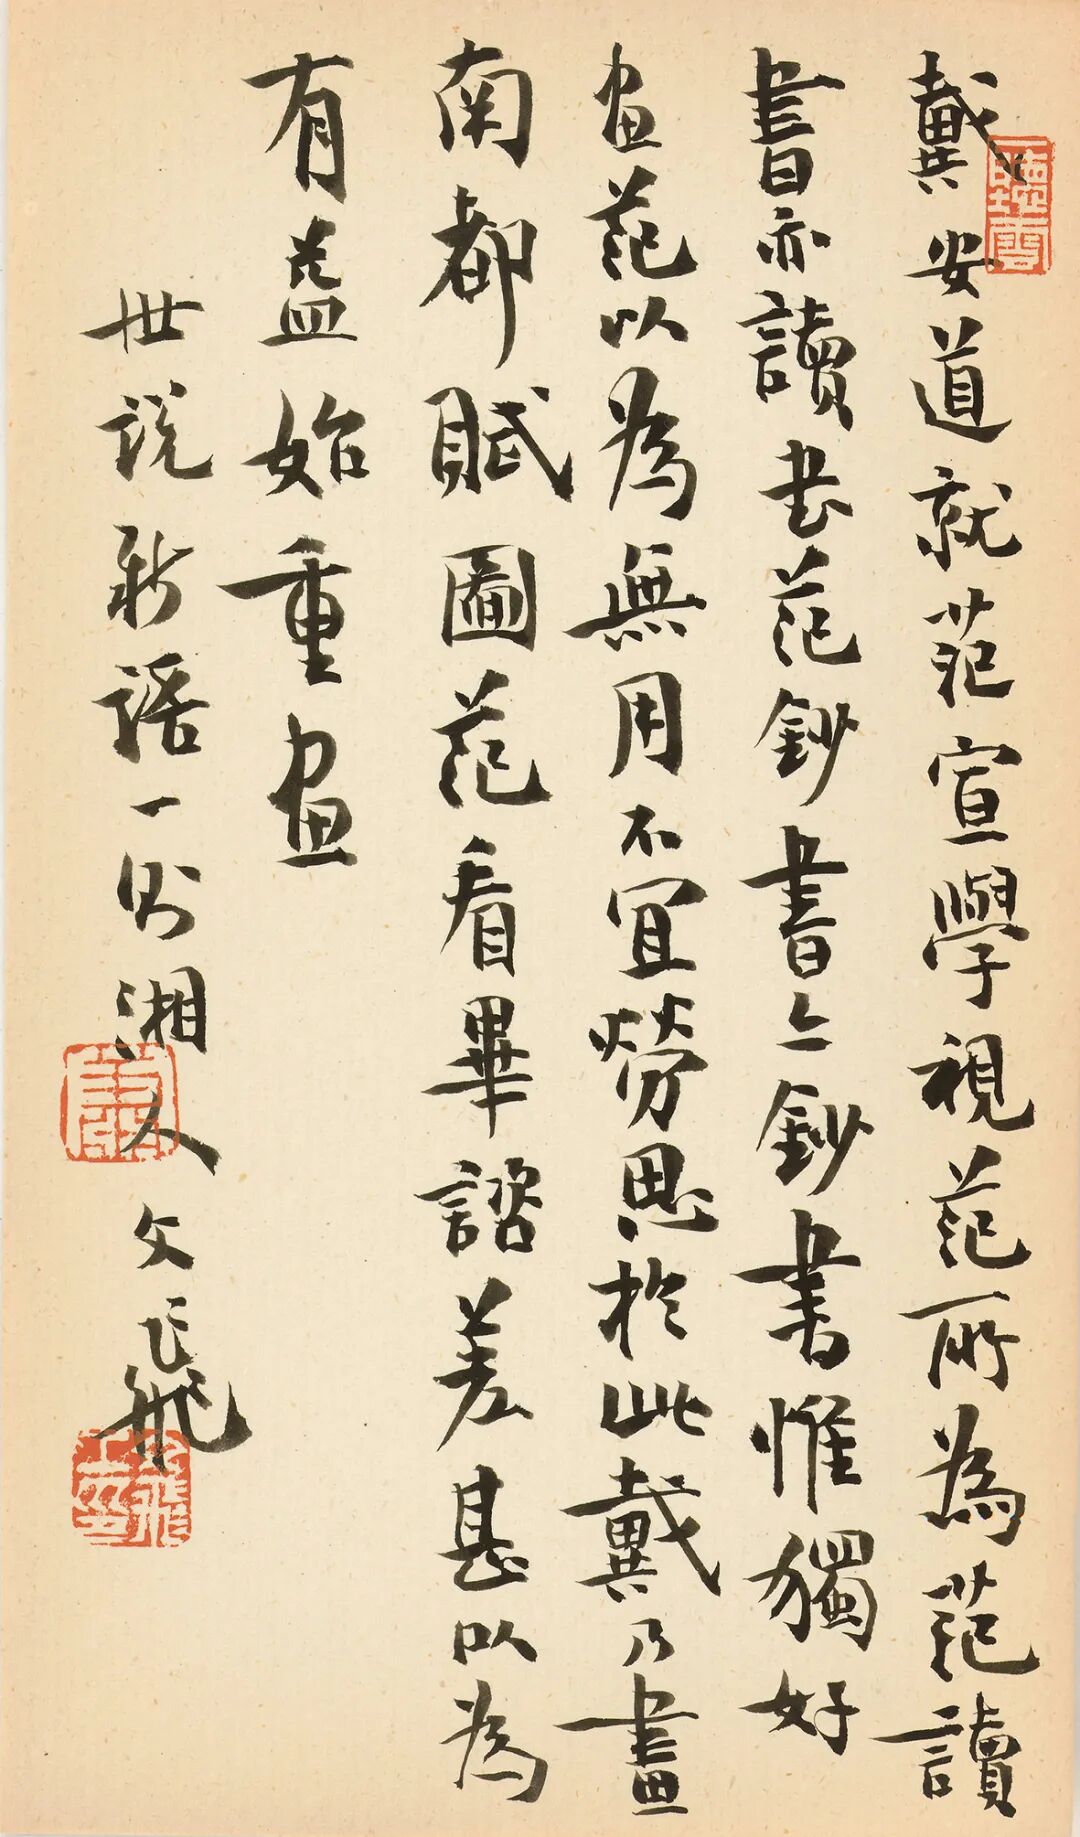 戴安道就范宣學視范所為范讀
書亦讀书范鈔書亦鈔書惟獨好
画范以為無用不宜勞思於此戴乃畫
南都賦圖范看畢諮差甚以為
有益始重画
世説新語一則湘人文飛